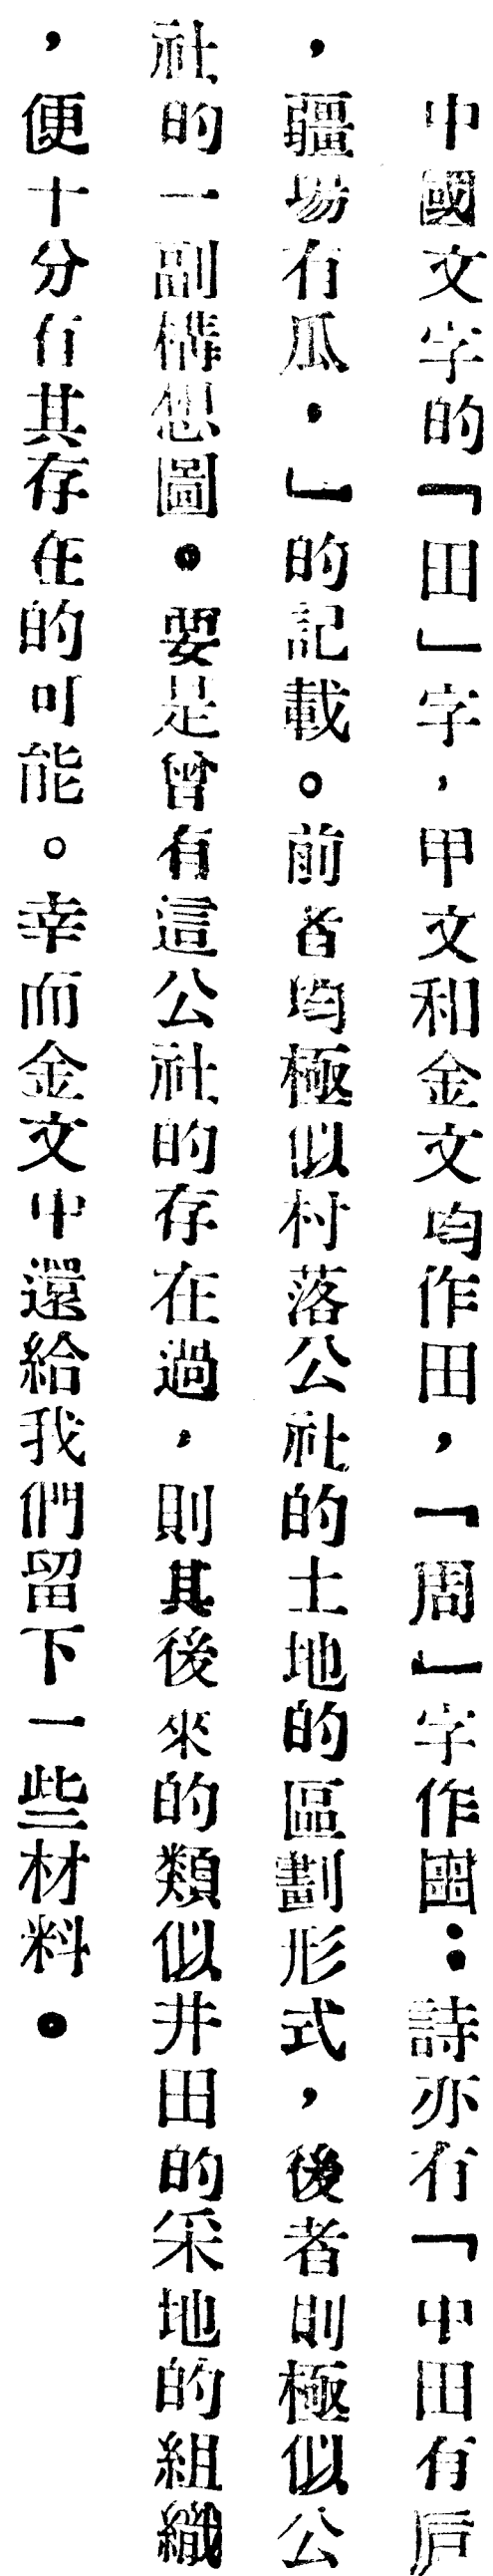 中國文字的「田」字，甲文和金文均作田，「周」字作圖：詩亦有「中田有戶
，疆場有瓜，」的記載。前者均極似村落公社的土地的區劃形式，後者則極似公
社的一副構想圖。要是曾有這公社的存在過，則其後來的類似井田的采地的組織
，便十分有其存在的可能。幸而金文中還給我們留下一些材料。